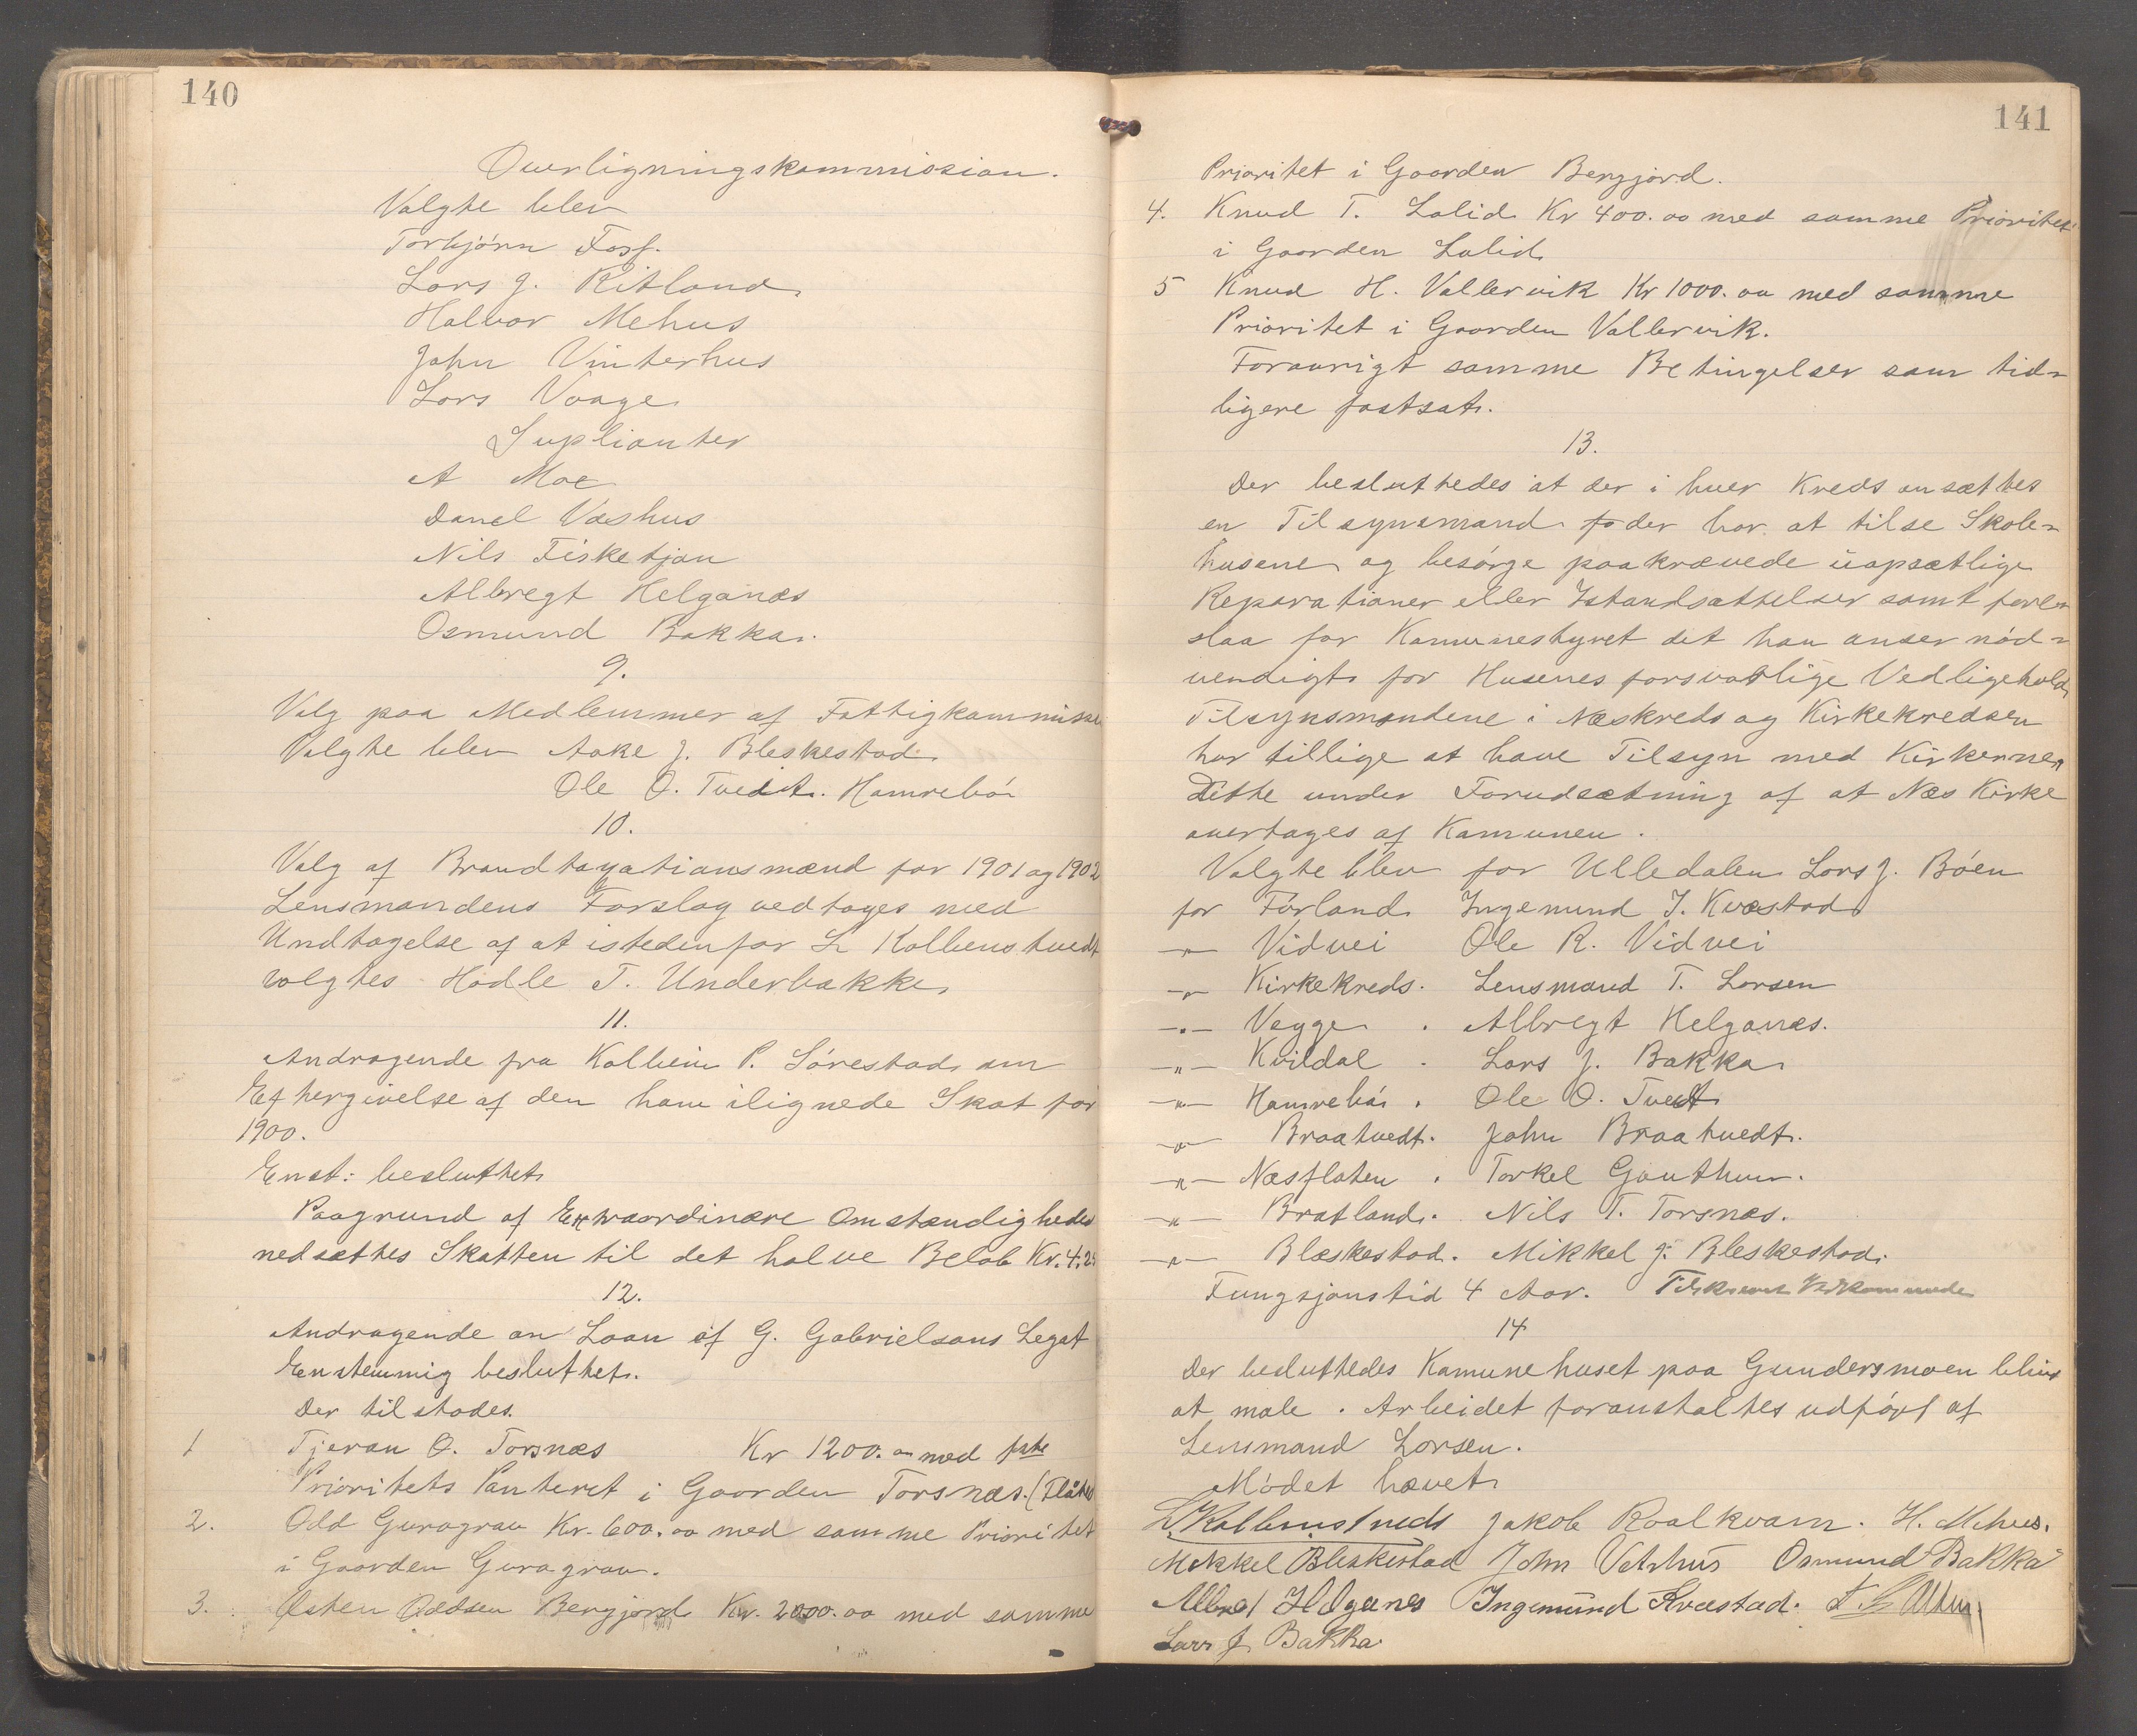 140
Overligningskommission.
Valgte blev
Torbjörn Foss.
Lars J. Ritland
Halvor Mehus
John Vinterhus
Lars Vaage
Suplianter
A Moe
Danel Væshus
Nils Fisketjøn
Albregt Helganæs
Osmund Bakka.
9.
Valg paa Medlemmer af Fattigkommiss
Valgte blev Aake J. Bleskestad
Ole O. Tvedt. Hamrebö
10.
Valg af Brandtaxationsmænd for 1901 og 1902
Lensmandens Forslag vedtoges med
Undtagelse af at istedenfor L Kolbenstvedt
valgtes Hodle T. Underbakke
11.
Andragende fra Kolbein P. Sörestad om
Eftergivelse af den ham ilignede Skat for
1900.
Enst: besluttet
Paagrund af Extraordinære Omstændigheder
nedsættes Skatten til det halve Belöb Kr. 4.25
12.
Andragende om Laan af G. Gabrielsens Legat
Enstemmig besluttet.
Der tilstodes.
1 Tjeran O. Torsnæs Kr 1200.00 med 1ste
Prioritets Panteret i Gaarden Torsnæs.
2. Odd Guragrav Kr. 600.00 med samme Prioritet
i Gaarden Guragrav.
3. Østen Oddsen Bergjord Kr. 2000.00 med samme
141
Prioritet i Gaarden Bergjord.
4. Knud T. Lalid Kr 400.00 med samme Prioritet
i Gaarden Lalid
5 Knud H. Vallervik Kr 1000.00 med samme
Prioritet i Gaarden Vallervik.
Forövrigt samme Betingelser som tid-
ligere fastsat.
13.
Der besluttedes at der i hver Kreds ansættes
en Tilsynsmand der har at tilse Skole-
husene og besörge paakrævede uopsætlige
Reparationer eller Istandsættelser samt fore-
slaa for Kamunestyret det han anser nöd-
vendigt for Husenes forsvarlige Vedligehold
Tilsynsmændene i Næskreds og Kirkekredsen
har tillige at have Tilsyn med Kirkerne
Dette under Forudsætning af at Næs Kirke
overtages af Kamunen.
Valgte blev for Ulledalen Lars J. Böen
for Förland Ingemund J. Kvæstad
-"- Vidvei Ole R. Vidvei
-"- Kirkekreds. Lensmand T. Larsen
-"- Vegge . Albregt Helganæs.
-"- Kvildal . Lars J. Bakka
-"- Hamrebö . Ole O. Tvedt
-"- Braatvedt. John Braatvedt.
-"- Næsflaten . Torkel Gauthun.
-"- Bratland. Nils T. Torsnæs.
-"- Blæskestad. Mikkel J. Bleskestad.
Fungsjonstid 4 Aar.
14
Der besluttedes Kamunehuset paa Gundersmoen blive
at male . Arbeidet foranstaltes udfört af
Lensmand Larsen.
Mödet hævet
L Kolbenstvedt Jakob Roalkvam. H. Mehus.
Mikkel Bleskestad John Vetrhus Osmund Bakka
Albregt Helganes Ingemund Kvæstad.
Lars J. Bakka